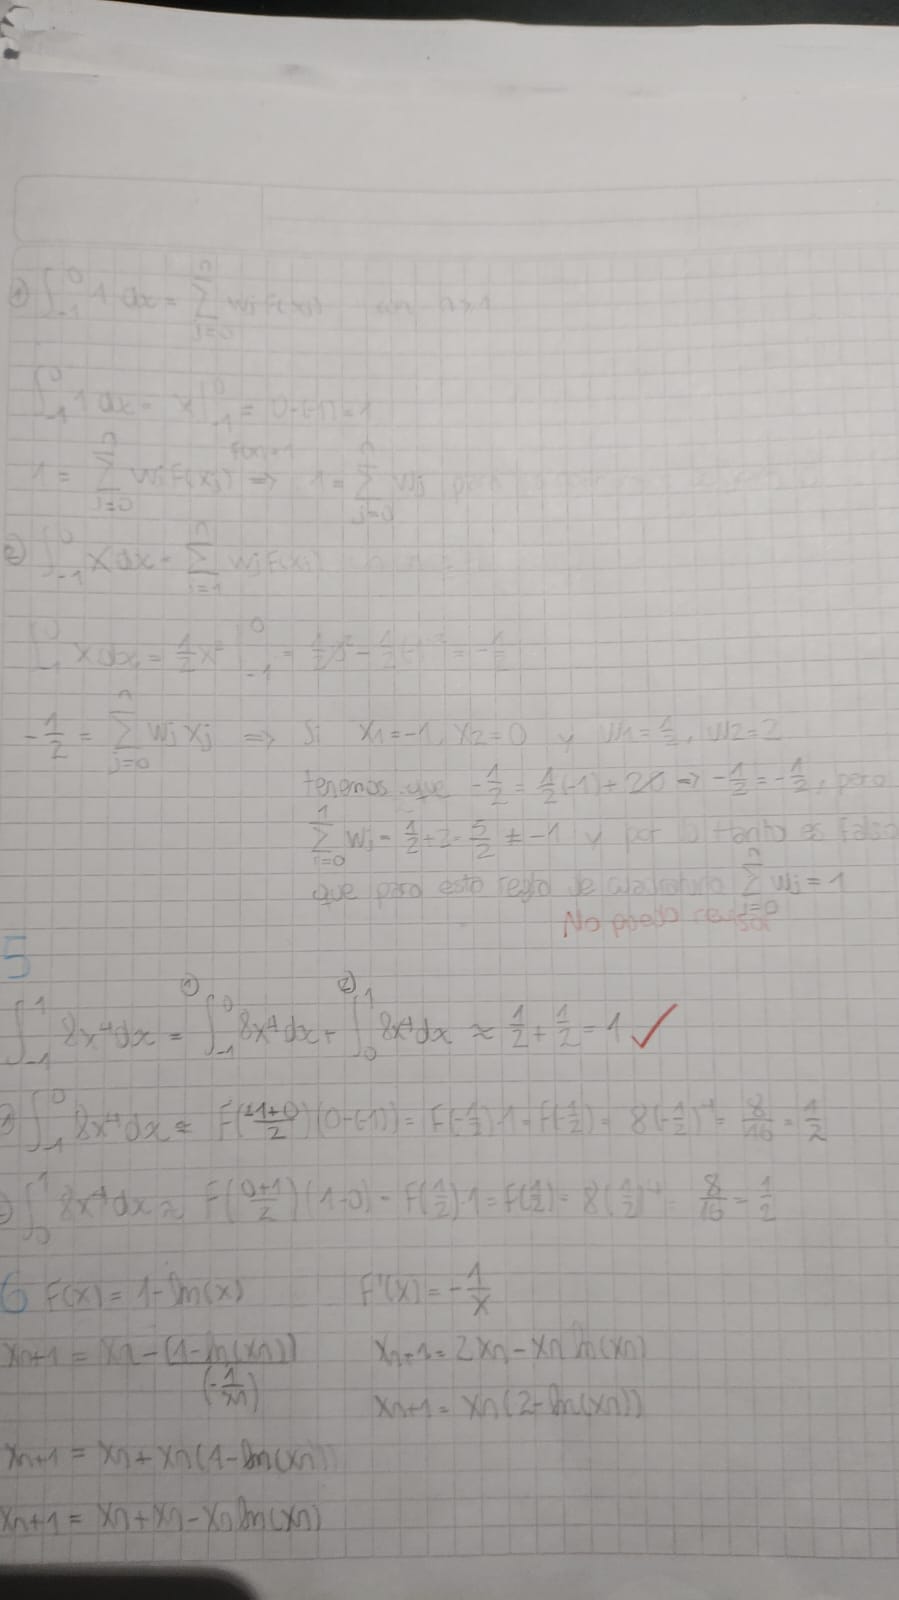 ① ∫_{-1}^{0} 1 dx = Σ_{j=0}^{n} wj f(xj) con n≥1
∫_{-1}^{0} 1 dx = x |_{-1}^{0} = 0-(-1) = 1
1 = Σ_{j=0}^{n} wj f(xj) ⇒ 1 = Σ_{j=0}^{n} wj para
② ∫_{-1}^{0} x dx = Σ_{i=1}^{n} wj f(xj)
∫_{-1}^{0} x dx = 1/2 x² |_{-1}^{0} = 1/2 0² - 1/2 (-1)² = -1/2
-1/2 = Σ_{j=0}^{n} wj xj ⇒ Si x1=-1, x2=0 y w1=1/2, w2=2
tenemos que -1/2 = 1/2(-1) + 2·0 ⇒ -1/2 = -1/2, pero
Σ_{i=0}^{1} wj = 1/2 + 2 = 5/2 ≠ -1 y por lo tanto es falso
que para esta regla de cuadratura Σ_{j=0}^{n} wj = 1
No puedo revisar
5
∫_{-1}^{1} 8x⁴dx = ① ∫_{-1}^{0} 8x⁴dx + ② ∫_{0}^{1} 8x⁴dx ≈ 1/2 + 1/2 = 1 ✓
① ∫_{-1}^{0} 8x⁴dx ≈ F((-1+0)/2)(0-(-1)) = F(-1/2)·1 = F(-1/2) = 8(-1/2)⁴ = 8/16 = 1/2
② ∫_{0}^{1} 8x⁴dx ≈ F((0+1)/2)(1-0) = F(1/2)·1 = F(1/2) = 8(1/2)⁴ = 8/16 = 1/2
6 F(x) = 1-ln(x) F'(x) = -1/x
xn+1 = xn - (1-ln(xn))/(-1/xn) xn+1 = 2xn - xn ln(xn)
xn+1 = xn(2-ln(xn))
xn+1 = xn + xn(1-ln(xn))
xn+1 = xn + xn - xn ln(xn)